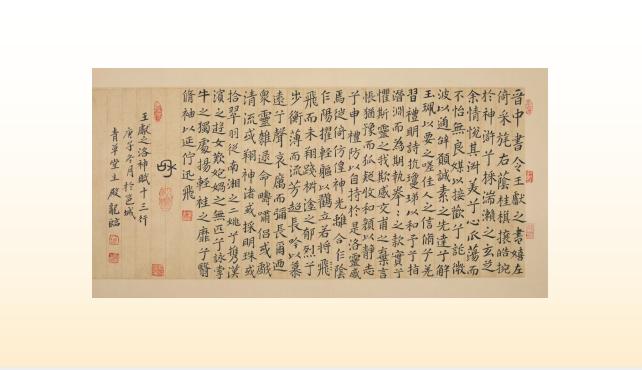 晉中書令王獻之書嬉左
倚采旄右蔭桂旗攘皓捥
於神滸兮採湍瀨之玄芝
余情悅其淑美兮心振蕩而
不怡無良媒以接歡兮託微
波以通辭願誠素之先達兮解
玉珮以要之嗟佳人之信脩兮羌
習禮明詩抗瓊珶以和予兮指
潛淵而為期執拳〻之款實兮
懼斯靈之我欺感交甫之棄言
悵猶豫而狐疑收和顏以靜志
兮申禮防以自持於是洛靈感
焉徙倚仿偟神光離合乍陰
乍陽擢輕軀以鶴立若將飛
飛而未翔踐椒塗之郁烈兮
步衡薄而流芳超長吟以慕
遠兮聲哀厲而彌長爾迺
衆靈雜遝命疇嘯侶或戲
清流或翔神渚或採明珠或
拾翠羽從南湘之二姚兮攜漢
濱之遊女歎媧之無匹兮詠牽
牛之獨處揚輕袿之靡兮翳
脩袖以延佇迅飛
王獻之洛神賦十三行
庚子冬月於邕城
青草堂主殿龍臨